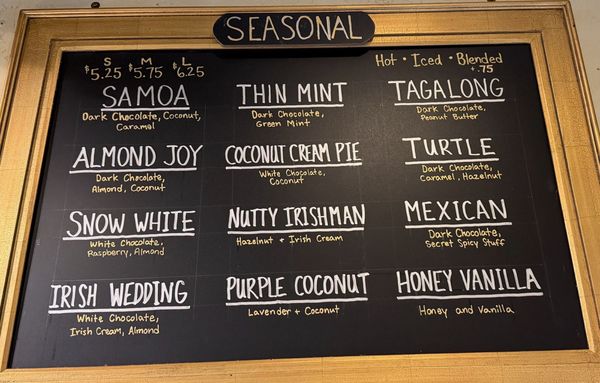 SEASONAL
S M L
$5.25 $5.75 $6.25
Hot • Iced • Blended
+.75
SAMOA
Dark Chocolate, Coconut,
Caramel
THIN MINT
Dark Chocolate,
Green Mint
TAGALONG
Dark Chocolate,
Peanut Butter
ALMOND JOY
Dark Chocolate,
Almond, Coconut
COCONUT CREAM PIE
White Chocolate,
Coconut
TURTLE
Dark Chocolate,
Caramel, Hazelnut
SNOW WHITE
White Chocolate,
Raspberry, Almond
NUTTY IRISHMAN
Hazelnut + Irish Cream
MEXICAN
Dark Chocolate,
Secret Spicy Stuff
IRISH WEDDING
White Chocolate,
Irish Cream, Almond
PURPLE COCONUT
Lavender + Coconut
HONEY VANILLA
Honey and Vanilla